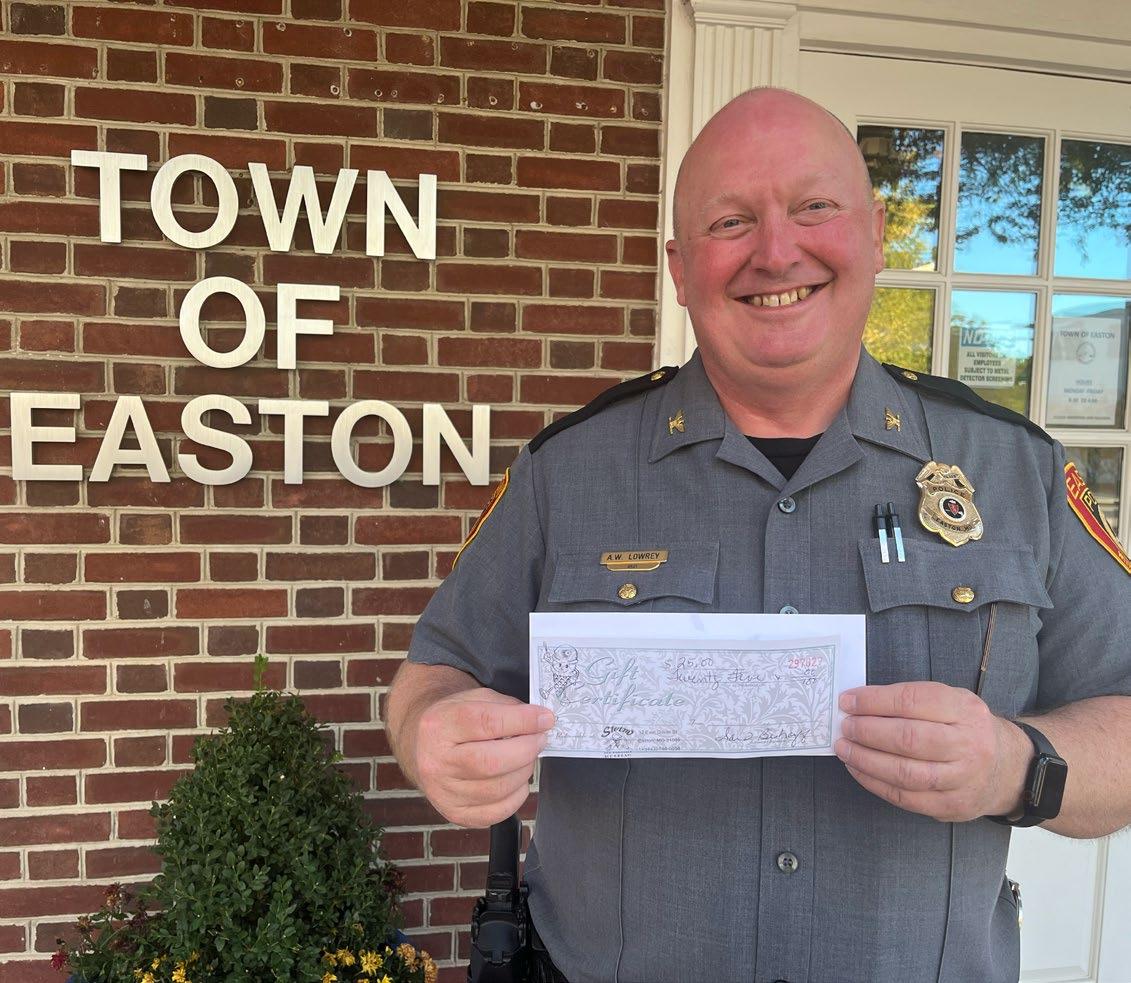 TOWN
OF
EASTON
NO
ALL VISITORS &
EMPLOYEES
SUBJECT TO METAL
DETECTOR SCREENING
TOWN OF EASTON
HOURS
MONDAY-FRIDAY
POLICE
EASTON
A.W. LOWREY
Gift
Certificate
$ 25.00
297027
Twenty Five